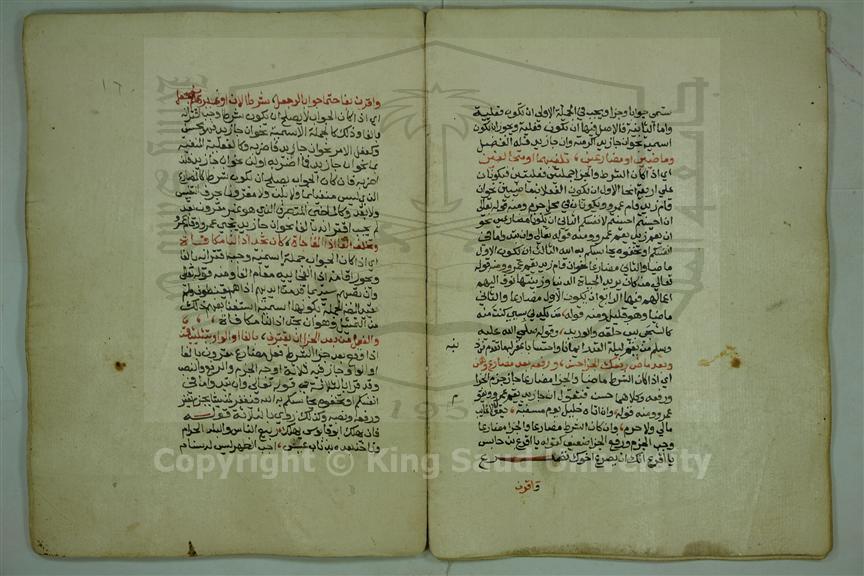 يسمى جوابا وجزاء ويجب في الجملة الاولى ان تكون فعلية
واما الثانية فالاصل فيها ان تكون فعلية ويجوز ان تكون
اسمية نحو ان جاء زيد اكرمته وان جاء زيد فله الفضل
وماضيين او مضارعين، تلفيهما او متخالفين
اي اذا كان الشرط والجزاء جملتين فعليتين فيكونان
على اربعة انحاء الاول ان يكون الفعلان ماضيين نحو ان
قام زيد قام عمرو ويكونان في محل جزم ومنه قوله تعالى
ان احسنتم احسنتم لانفسكم الثاني ان يكونا مضارعين نحو
ان يقم زيد يقم عمرو ومنه قوله تعالى وان تبدوا ما في
انفسكم او تخفوه يحاسبكم به الله الثالث ان يكون الاول
ماضيا والثاني مضارعا نحو ان قام زيد يقم عمرو ومنه قوله
تعالى من كان يريد الحياة الدنيا وزينتها نوف اليهم
اعمالهم فيها الرابع ان يكون الاول مضارعا والثاني
ماضيا وهو قليل ومنه قوله، من يكدني بسيئ كنت منه
كالشجى بين حلقه والوريد، وقوله صلى الله عليه
وسلم من يقم ليلة القدر ايمانا واحتسابا غفر له ما تقدم من ذنبه
وبعد ماض رفعك الجزا حسن، ورفعه بعد مضارع وهن
اي اذا كان الشرط ماضيا والجزا مضارعا جاز جزم الجزا
ورفعه وكلاهما حسن فتقول ان جاء زيد يقم عمرو ويقوم
عمرو ومنه قوله، وان اتاه خليل يوم مسغبة، يقول لا غائب
مالي ولا حرم، وان كان الشرط مضارعا والجزا مضارعا
وجب الجزم ورفع الجزا ضعيف كقوله يا اقرع بن حابس
يا اقرع انك ان يصرع اخوك تصرع
واقرن
واقرن بفا حتما جوابا لو جعل، شرطا لان او غيرها لم ينجعل
اي اذا كان الجواب لا يصلح ان يكون شرطا وجب اقترانه
بالفا وذلك كالجملة الاسمية نحو ان جاء زيد فهو محسن
وكفعل الامر نحو ان جاء زيد فاضربه وكالفعلية المنفية
بما نحو ان جاء زيد فما اضربه او لن نحو ان جاء زيد فلن
اضربه فان كان الجواب يصلح ان يكون شرطا كالمضارع
الذي ليس منفيا بما ولا بلن ولا مقرونا بحرف التنفيس
ولا بقد وكالماضي المتصرف الذي هو غير مقرون بقد
لم يجب اقترانه بالفا نحو ان جاء زيد يجي عمرو وقام عمرو
وتخلف الفا اذا المفاجاة، كان تجد اذا لنا مكافاة
اي اذا كان الجواب جملة اسمية وجب اقترانه بالفا
ويجوز اقامة اذا الفجائية مقام الفا ومنه قوله تعالى
وان تصبهم سيئة بما قدمت ايديهم اذا هم يقنطون ولم
يقيد المص الجملة بكونها اسمية استغنا بفهم ذلك
من التمثيل وهو ان تجد اذا لنا مكافاة
والفعل من بعد الجزا ان يقترن، بالفا او الواو بتثليث قمن
اذا وقع بعد جزا الشرط فعل مضارع مقرون بالفا
او الواو جاز فيه ثلاثة اوجه الجزم والرفع والنصب
وقد قرئ بالثلاثة في قوله تعالى وان تبدوا ما في
انفسكم او تخفوه يحاسبكم به الله فيغفر لمن يشا بجزم يغفر
ورفعه ونصبه وكذلك روي بالثلاثة قوله
فان يهلك ابو قابوس يهلك، ربيع الناس والبلد الحرام
وناخذ بعده بذناب عيش، اجب الظهر ليس له سنام
Copyright © King Saud University